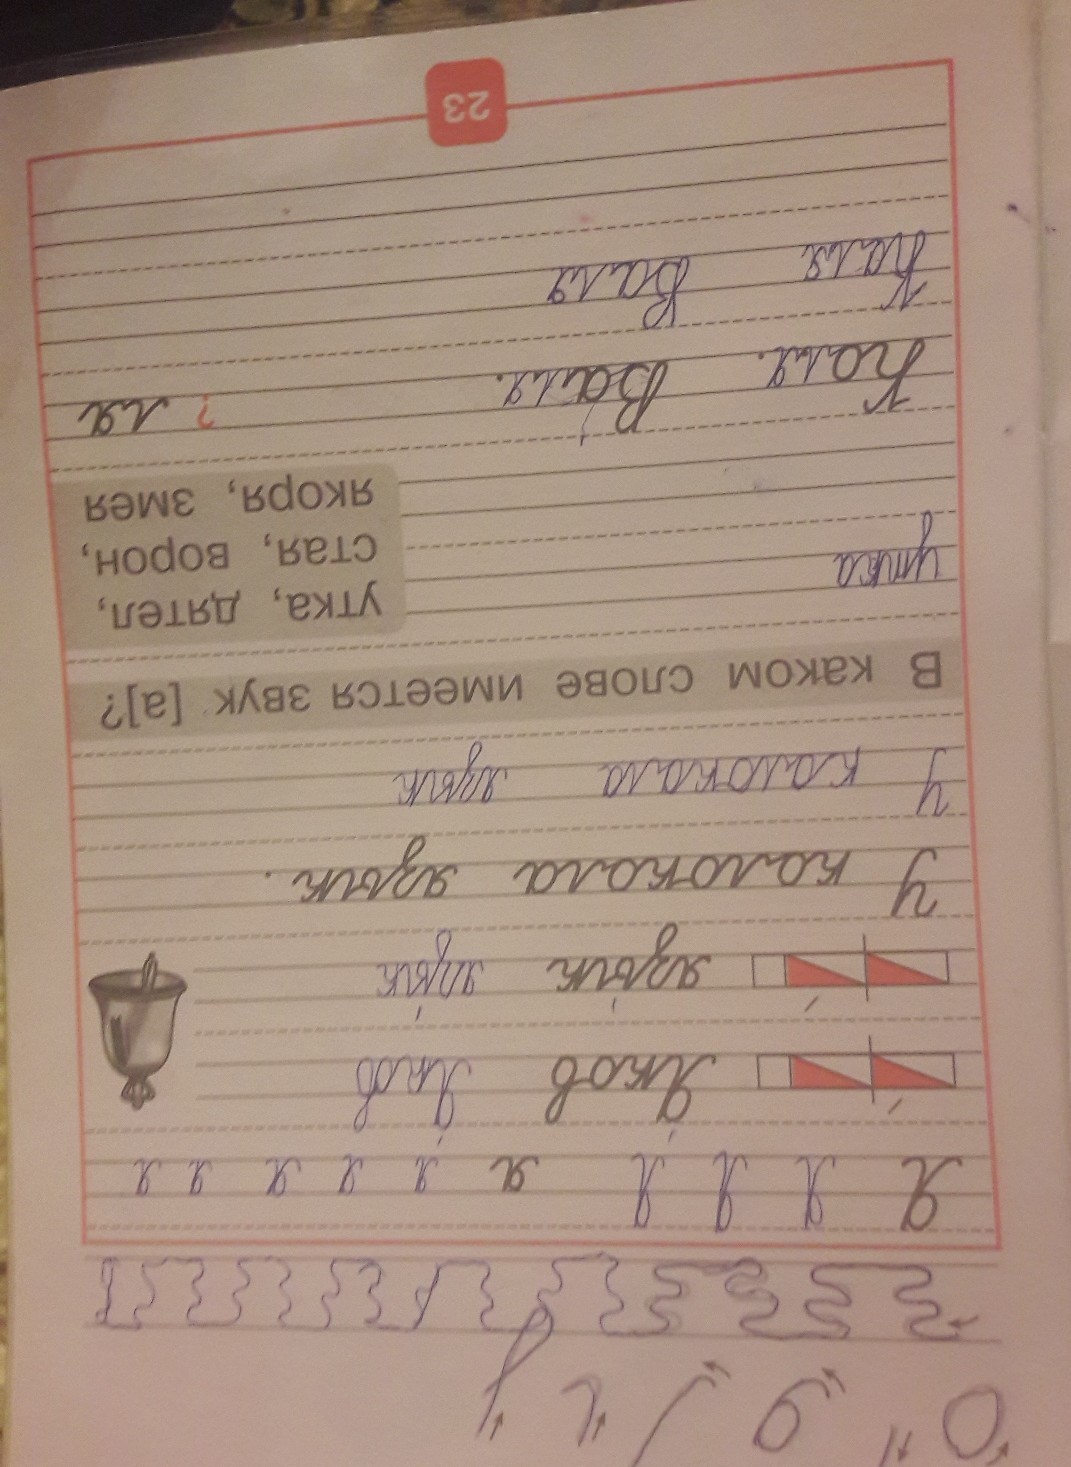 Я Я Я Я я я я я я я
Яков Яков
язык язык
У колокола язык.
У колокола язык
В каком слове имеется звук [а]?
утка, дятел,
стая, ворон,
якоря, змея
утка
? ля
Коля. Валя.
Коля Валя
23